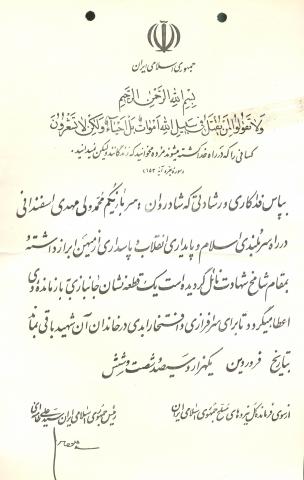 جمهوری اسلامی ایران
بسم الله الرحمن الرحیم
ولا تقولوا لمن یقتل فی سبیل الله اموات بل احیاء ولکن لا تشعرون
کسانی را که در راه خدا کشته میشوند مرده مخوانید که زنده گانند و لیکن نمیدانید.
سوره بقره آیه ۱۵۳
بپاس فداکاری و رشادتی که شادروان سرباریکم محمدولی مهدی اسفندانی
در راه سربلندی اسلام و پایداری انقلاب و پاسداری از میهن ابراز داشته و
بمقام شامخ شهادت نائل گردیده است یک قطعه نشان جانبازی ببازمانده وی
اعطا میگردد تا برای سرافرازی و افتخار ابدی در خاندان آن شهید باقی بماند
بتاریخ فروردین یکهزار و سیصد و شصت و شش
از سوی فرمانده کل نیروهای مسلح جمهوری اسلامی ایران
رئیس جمهوری اسلامی ایران سید علی خامنه‌ای